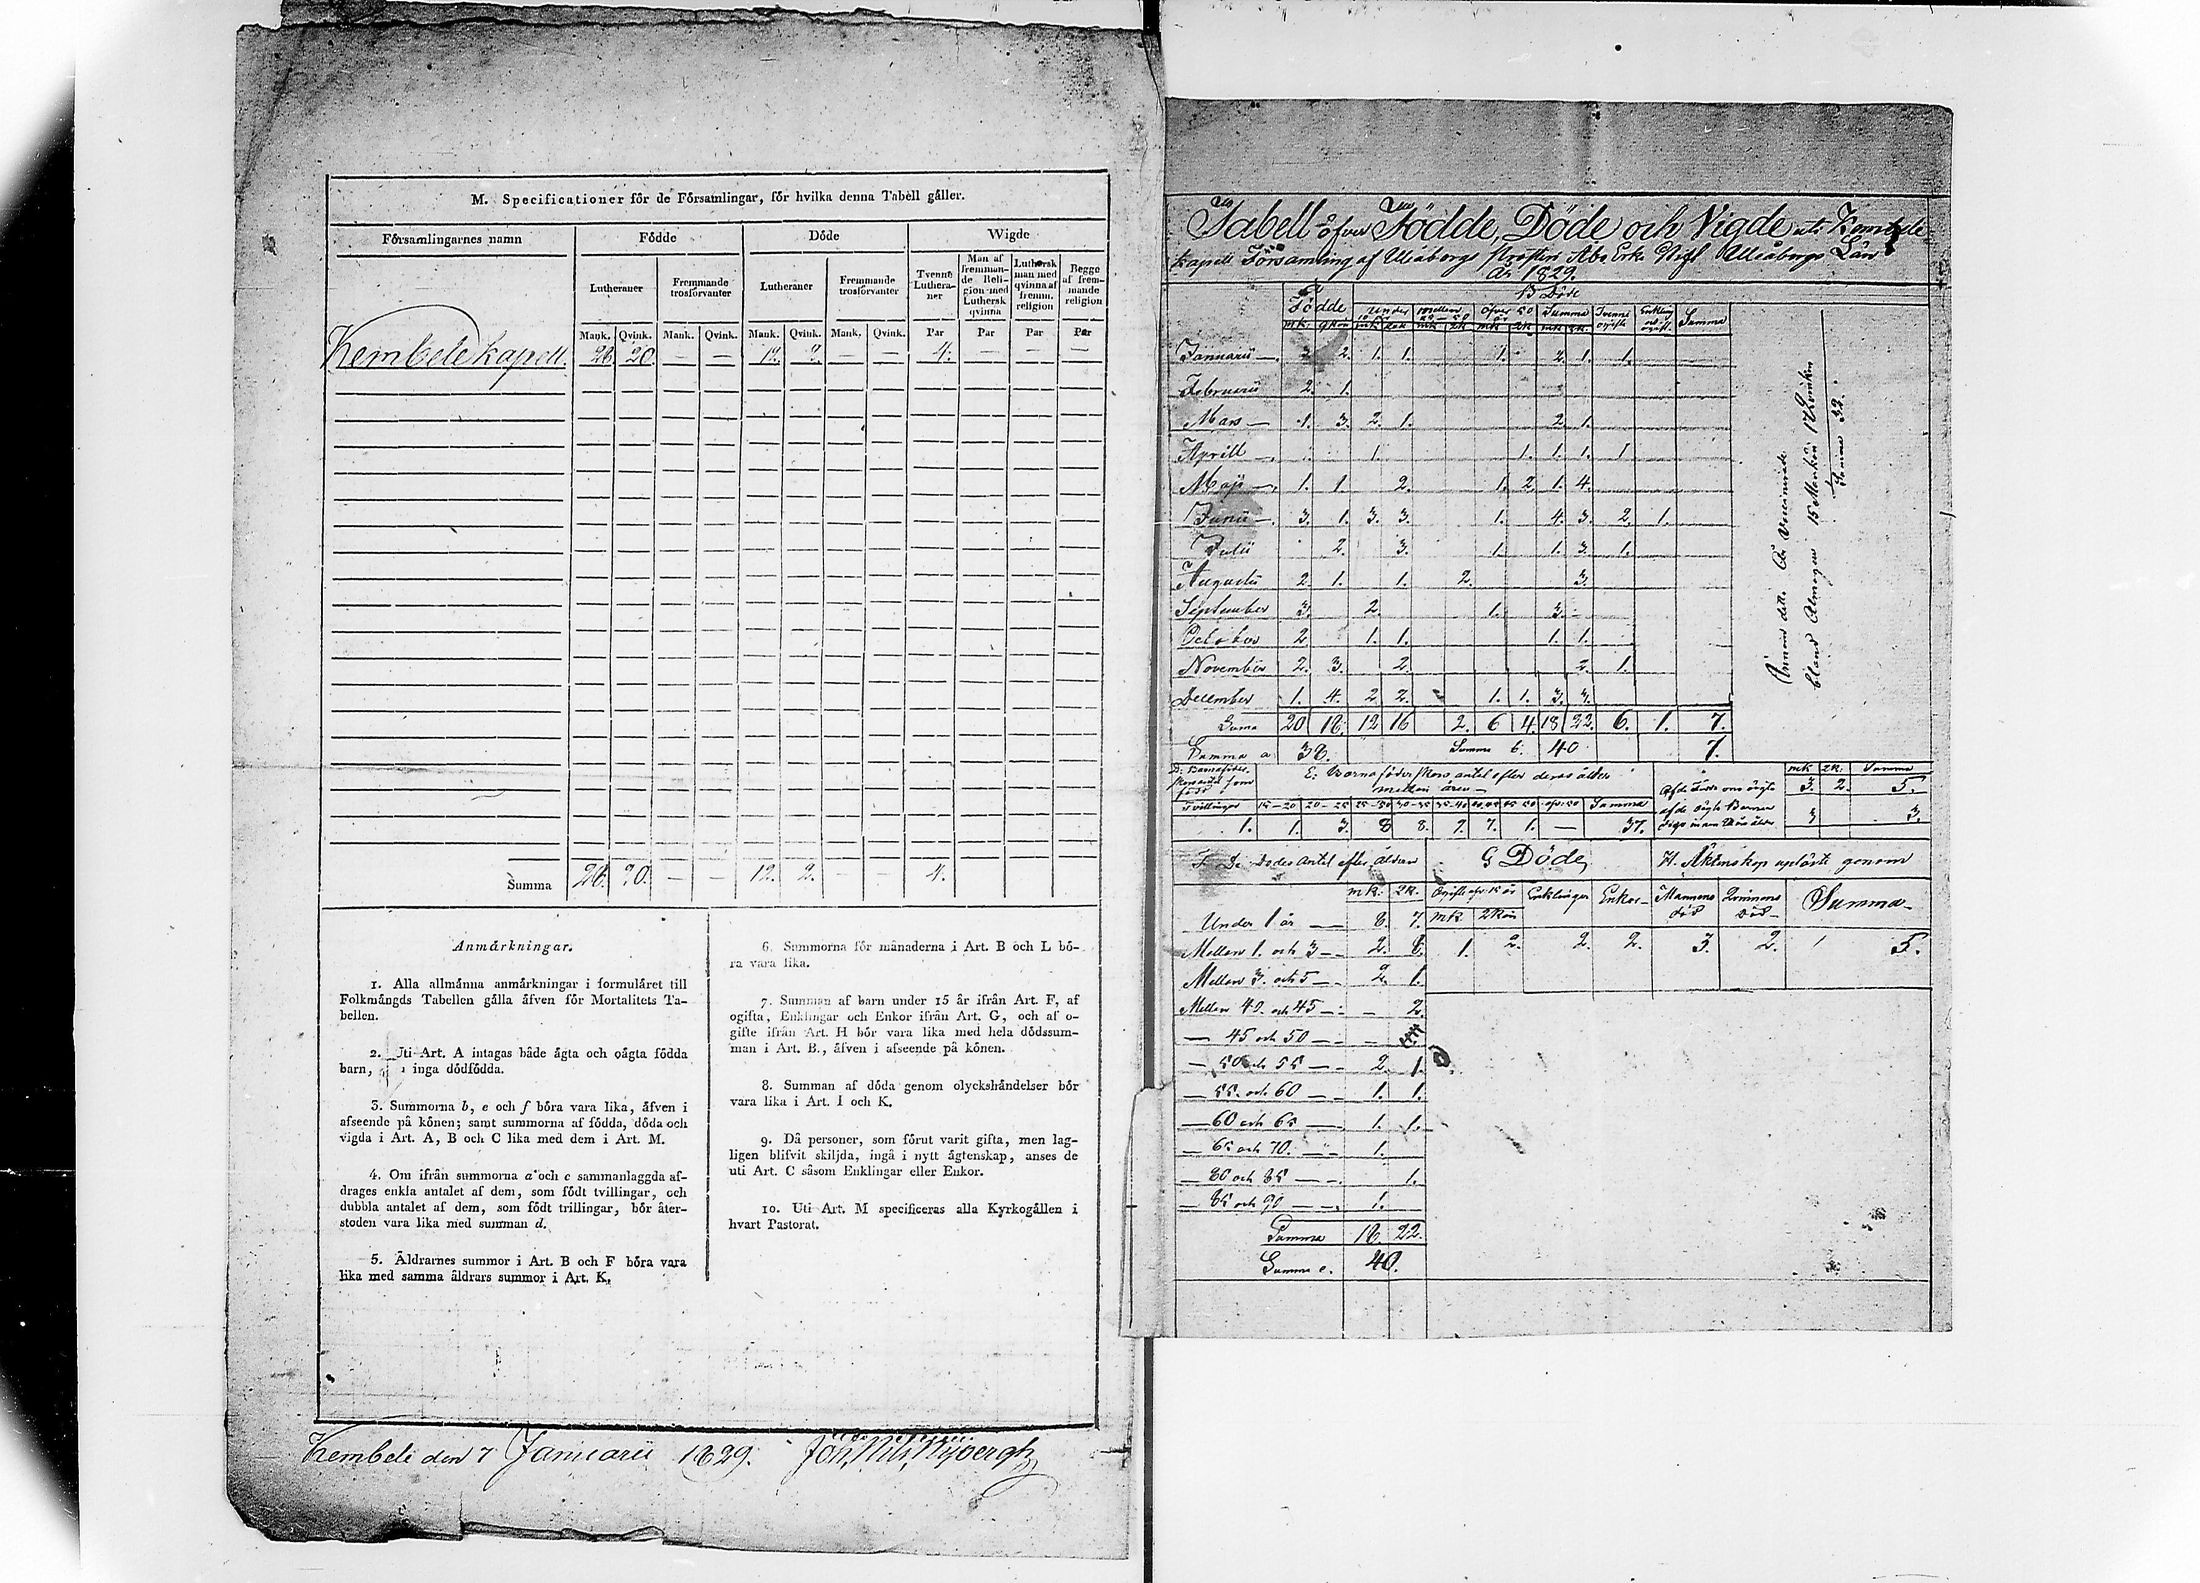 M. Specificationer för de Församlingar, för hvilka denna Tabell gäller.
Församlingarnes namn Födde Döde Wigde
Lutheraner Fremmande trosförvanter Lutheraner Fremmande trosförvanter Tvenne Lutheraner Man af fremmande Religion med Luthersk qvinna Luthersk man med qvinna af fremm. religion Begge af fremmande religion
Mank. Qvink. Mank. Qvink. Mank. Qvink. Mank. Qvink. Par Par Par Par
Kembele kapell. 26 20 — — 12. 2. — — 4. — — —
Summa 26. 20. — — 12. 2. — — 4.
Anmärkningar.
1. Alla allmänna anmärkningar i formuläret till
Folkmängds Tabellen gälla äfven för Mortalitets Ta-
bellen.
2. Uti Art. A intagas både ägta och oägta födda
barn, inga dödfödda.
3. Summorna b, e och f böra vara lika, äfven i
afseende på könen; samt summorna af födda, döda och
vigda i Art. A, B och C lika med dem i Art. M.
4. Om ifrån summorna a och c sammanlaggda af-
drages enkla antalet af dem, som födt tvillingar, och
dubbla antalet af dem, som födt trillingar, bör åter-
stoden vara lika med summan d.
5. Åldrarnes summor i Art. B och F böra vara
lika med samma åldrars summor i Art. K.
6. Summorna för månaderna i Art. B och L bö-
ra vara lika.
7. Summan af barn under 15 år ifrån Art. F, af
ogifta, Enklingar och Enkor ifrån Art. G, och af o-
gifte ifrån Art. H bör vara lika med hela dödssum-
man i Art. B., äfven i afseende på könen.
8. Summan af döda genom olyckshändelser bör
vara lika i Art. I och K.
9. Då personer, som förut varit gifta, men lag-
ligen blifvit skiljda, ingå i nytt ägtenskap, anses de
uti Art. C såsom Enklingar eller Enkor.
10. Uti Art. M specificeras alla Kyrkogällen i
hvart Pastorat.
Kembele den 7 Januarii 1829. Joh. Nils. Nybergh
Tabell öfver Födde, Döde och Vigde uti Kembele
kapell Församling af Uleåborgs Prosteri Åbo Erke Stift Uleåborgs Län
År 1829.
Födde B Döde
Under Mellan Öfver 50 Summa Summa
Januarii 2. 1. 1. 1. 2. 1. 1.
Februarii 2. 1.
Mars 1. 3. 2. 1. 2. 1.
Aprill 1. 1. 1. 1. 1
Maji 1. 1. 2. 1. 2. 1. 4.
Junii 3. 1. 3. 3. 1. 4. 3. 2. 1.
Julii 2. 3. 1. 1. 3. 1.
Augusti 2. 1. 1. 2. 3.
September 3. 2. 1. 3.
October 2. 1. 1. 1. 1.
November 2. 3. 2. 2. 1.
December 1. 4. 2 2. 1. 1. 3. 3.
Suma 20 18. 12 16 2. 6 4. 18 22. 6. 1. 7.
Summa a 38. Summa b. 40. 7.
bland Almogen 15 Mankön 17 Qvinkön
Summa 32.
E. Barnaföderskors antal efter deras ålder
mellan åren
mk 2k. Summa
Tvillingar 15–20 20–25 25–30 30–35 35–40 40–45 45 50 öfv: 50 Summa
1. 1. 3. 8 8. 9. 7. 1. — 37.
3. 2. 5.
3 3.
F. De Dödes Antal efter åldren
mk. 2k.
Under 1 år 8. 7.
Mellan 1. och 3 2. 8.
Mellan 3. och 5 2. 1.
Mellan 40. och 45 — 2.
45 och 50
50 och 55 2. 1.
55. och 60 1. 1.
60 och 65 1. 1.
65 och 70. 1.
80 och 85 1.
85 och 90 1.
Summa 18. 22.
Summa e. 40.
G Döde
Ogifte öfv. 15 år Enklingar Enkor
mk 2kön
1. 2. 2. 2.
H. Äktenskap uplöste genom
Mannens död Qvinnans död Summa
3. 2. 5.